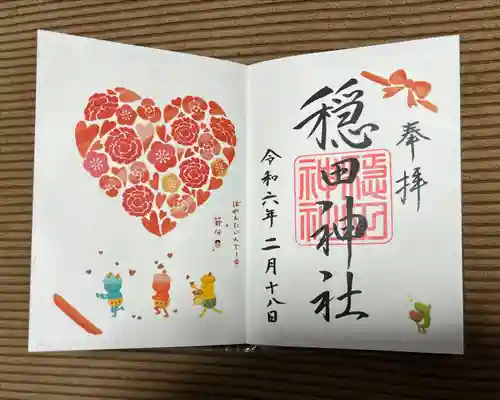 奉拝
穏田神社
穏田
神社
令和六年二月十八日
ばれんたいんでー&
節分